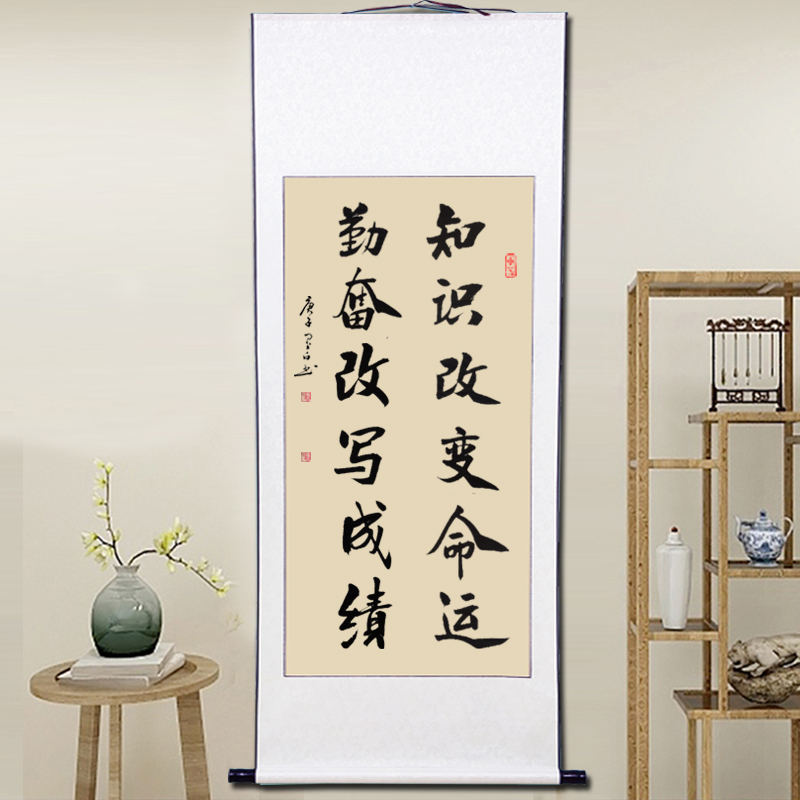 知识改变命运
勤奋改写成绩
庚子